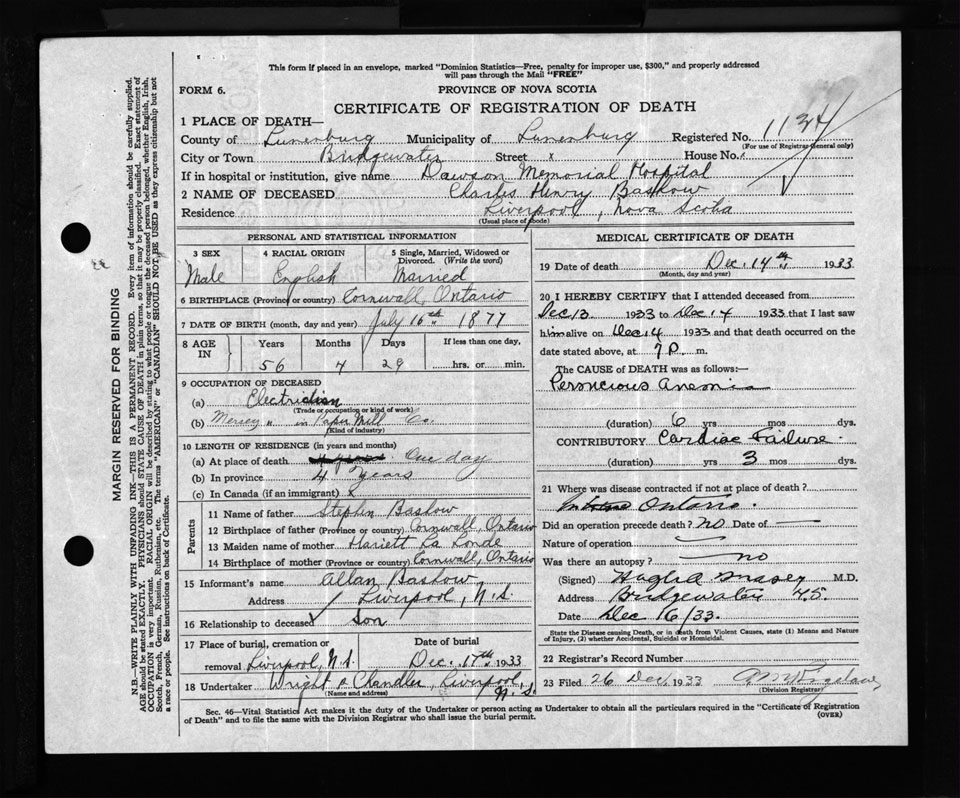 This form if placed in an envelope, marked "Dominion Statistics—Free, penalty for improper use, $300," and properly addressed
will pass through the Mail "FREE"
FORM 6.
PROVINCE OF NOVA SCOTIA
CERTIFICATE OF REGISTRATION OF DEATH
1 PLACE OF DEATH—
County of Lunenburg Municipality of Lunenburg Registered No. 1134
(For use of Registrar General only)
City or Town Bridgewater Street x House No. x
If in hospital or institution, give name Dawson Memorial Hospital
2 NAME OF DECEASED Charles Henry Bashow
Residence Liverpool, Nova Scotia
(Usual place of abode)
PERSONAL AND STATISTICAL INFORMATION
3 SEX 4 RACIAL ORIGIN 5 Single, Married, Widowed or
Divorced. (Write the word)
Male English Married
6 BIRTHPLACE (Province or country) Cornwall, Ontario
7 DATE OF BIRTH (month, day and year) July 16th 1877
8 AGE IN Years Months Days If less than one day,
56 4 29 hrs. or min.
9 OCCUPATION OF DECEASED
(a) Electrician
(Trade or occupation or kind of work)
(b) Mersey " in Paper Mill Co.
(Kind of industry)
10 LENGTH OF RESIDENCE (in years and months)
(a) At place of death One day
(b) In province 4 years
(c) In Canada (if an immigrant) x
Parents
11 Name of father Stephen Bashow
12 Birthplace of father (Province or country) Cornwall, Ontario
13 Maiden name of mother Hariett La Londe
14 Birthplace of mother (Province or country) Cornwall, Ontario
15 Informant's name Allan Bashow
Address Liverpool, N.S.
16 Relationship to deceased Son
17 Place of burial, cremation or Date of burial
removal Liverpool, N.S. Dec. 17th 1933
18 Undertaker Wright & Chandler, Liverpool, N.S.
(Name and address)
MEDICAL CERTIFICATE OF DEATH
19 Date of death Dec. 14th 1933
(Month, day and year)
20 I HEREBY CERTIFY that I attended deceased from
Dec 13 1933 to Dec 14 1933 that I last saw
him alive on Dec 14 1933 and that death occurred on
date stated above, at 7 P. m.
The CAUSE of DEATH was as follows:—
Pernicious Anemia
(duration) 6 yrs mos dys.
CONTRIBUTORY Cardiac Failure.
(duration) yrs 3 mos dys.
21 Where was disease contracted if not at place of death?
Ontario.
Did an operation precede death? no Date of —
Nature of operation
Was there an autopsy? no
(Signed) M.D.
Address Bridgewater N.S.
Date Dec 16/33.
State the Disease causing Death, or in death from Violent Causes, state (1) Means and Nature
of Injury, (2) whether Accidental, Suicidal or Homicidal.
22 Registrar's Record Number
23 Filed 26 Dec, 1933
(Division Registrar)
Sec. 46—Vital Statistics Act makes it the duty of the Undertaker or person acting as Undertaker to obtain all the particulars required in the "Certificate of Registration
of Death" and to file the same with the Division Registrar who shall issue the burial permit.
(OVER)
MARGIN RESERVED FOR BINDING
N.B.—WRITE PLAINLY WITH UNFADING INK—THIS IS A PERMANENT RECORD. Every item of information should be carefully supplied.
AGE should be stated EXACTLY. PHYSICIANS should STATE CAUSE OF DEATH in plain terms, so that it may be properly classified. Exact statement of
OCCUPATION is very important. RACIAL ORIGIN will be described by stating to what people or tongue the deceased person belonged, whether English, Irish,
Scotch, French, German, Russian, Ruthenian, etc. The terms "AMERICAN" or "CANADIAN" SHOULD NOT BE USED as they express citizenship but not
a race or people. See instructions on back of Certificate.